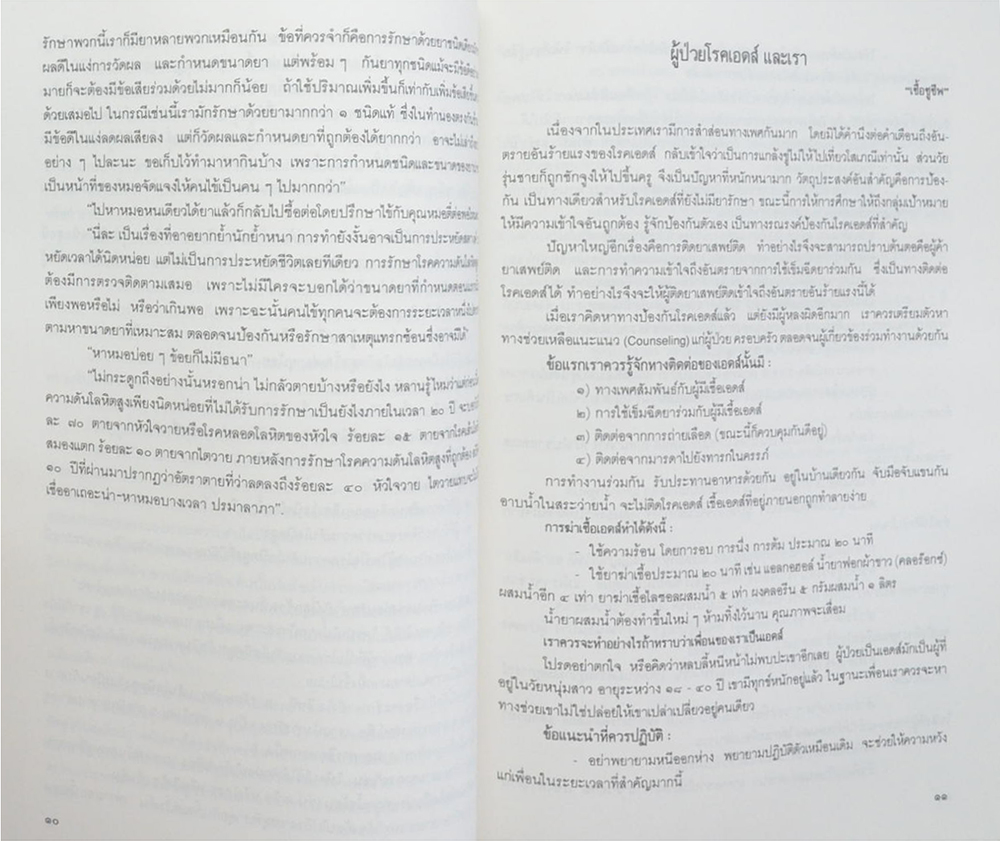 รักษาพวกนี้เราก็มียาหลายพวกเหมือนกัน ข้อที่ควรจำก็คือการรักษาด้วยยาชนิดเดียว
ผลดีในแง่การวัดผล และกำหนดขนาดยา แต่พร้อม ๆ กันยาทุกชนิดแม้จะมีข้อดี
มายก็จะต้องมีข้อเสียร่วมด้วยไม่มากก็น้อย ถ้าใช้ปริมาณเพิ่มขึ้นก็เท่ากับเพิ่มข้อเสีย
ด้วยเสมอไป ในกรณีเช่นนี้เรามักรักษาด้วยยามากกว่า ๑ ชนิดแท้ ซึ่งในทำนองตรงกันข้าม
มีข้อดีในแง่ลดผลเสียลง แต่ก็วัดผลและกำหนดยาที่ถูกต้องได้ยากกว่า อาจจะไม่
อย่าง ๆ ไปละนะ ขอเก็บไว้ทำมาหากินบ้าง เพราะการกำหนดชนิดและขนาดของยา
เป็นหน้าที่ของหมอจัดแจงให้คนไข้เป็นคน ๆ ไปมากกว่า"
"ไปหาหมอหนเดียวได้ยาแล้วก็กลับไปซื้อต่อโดยปรึกษาใช้กับคุณหมอตี๋
"นี่ละ เป็นเรื่องที่อาอยากย้ำนักย้ำหนา การทำยังงั้นอาจเป็นการประหยัด
หยัดเวลาได้นิดหน่อย แต่ไม่เป็นการประหยัดชีวิตเลยทีเดียว การรักษาโรคความดันโลหิต
ต้องมีการตรวจติดตามเสมอ เพราะไม่มีใครจะบอกได้ว่าขนาดยาที่กำหนดตอนแรก
เพียงพอหรือไม่ หรือว่าเกินพอ เพราะฉะนั้นคนไข้ทุกคนจะต้องการระยะเวลาหนึ่ง
ตามหาขนาดยาที่เหมาะสม ตลอดจนป้องกันหรือรักษาสาเหตุแทรกซ้อนซึ่งอาจมีได้"
"หาหมอบ่อย ๆ ข้อยก็ไม่มีธนา"
"ไม่กระดูกถึงอย่างนั้นหรอกน่า ไม่กลัวตายบ้างหรือยังไง หลานรู้ไหมว่า
ความดันโลหิตสูงเพียงนิดหน่อยที่ไม่ได้รับการรักษาเป็นยังไงภายในเวลา ๒๐ ปี
ละ ๗๐ ตายจากหัวใจวายหรือโรคหลอดโลหิตของหัวใจ ร้อยละ ๑๕ ตายจาก
สมองแตก ร้อยละ ๑๐ ตายจากไตวาย ภายหลังการรักษาโรคความดันโลหิตสูงที่ถูกต้อง
๑๐ ปีที่ผ่านมาปรากฏว่าอัตราตายที่ว่าลดลงถึงร้อยละ ๔๐ หัวใจวาย ไตวาย
เชื่ออาเถอะน่า-หาหมอบางเวลา ปรมาลาภา".
๑๐
ผู้ป่วยโรคเอดส์ และเรา
"เชื้อชูชีพ"
เนื่องจากในประเทศเรามีการสำส่อนทางเพศกันมาก โดยมิได้คำนึงต่อคำเตือนถึงอัน-
ตรายอันร้ายแรงของโรคเอดส์ กลับเข้าใจว่าเป็นการแกล้งขู่ไม่ให้ไปเที่ยวโสเภณีเท่านั้น ส่วนวัย
รุ่นชายก็ถูกชักจูงให้ไปขึ้นครู จึงเป็นปัญหาที่หนักหนามาก วัตถุประสงค์อันสำคัญคือการป้อง-
กัน เป็นทางเดียวสำหรับโรคเอดส์ที่ยังไม่มียารักษา ขณะนี้การให้การศึกษาให้ถึงกลุ่มเป้าหมาย
ให้มีความเข้าใจอันถูกต้อง รู้จักป้องกันตัวเอง เป็นทางรณรงค์ป้องกันโรคเอดส์ที่สำคัญ
ปัญหาใหญ่อีกเรื่องคือการติดยาเสพย์ติด ทำอย่างไรจึงจะสามารถปราบต้นตอคือผู้ค้า
ยาเสพย์ติด และการทำความเข้าใจถึงอันตรายจากการใช้เข็มฉีดยาร่วมกัน ซึ่งเป็นทางติดต่อ
โรคเอดส์ได้ ทำอย่างไรจึงจะให้ผู้ติดยาเสพย์ติดเข้าใจถึงอันตรายอันร้ายแรงนี้ได้
เมื่อเราคิดหาทางป้องกันโรคเอดส์แล้ว แต่ยังมีผู้หลงผิดอีกมาก เราควรเตรียมตัวหา
ทางช่วยเหลือแนะแนว (Counseling) แก่ผู้ป่วย ครอบครัว ตลอดจนผู้เกี่ยวข้องร่วมทำงานด้วยกัน
ข้อแรกเราควรรู้จักทางติดต่อของเอดส์นั้นมี :
๑) ทางเพศสัมพันธ์กับผู้มีเชื้อเอดส์
๒) การใช้เข็มฉีดยาร่วมกับผู้มีเชื้อเอดส์
๓) ติดต่อจากการถ่ายเลือด (ขณะนี้ก็ควบคุมกันดีอยู่)
๔) ติดต่อจากมารดาไปยังทารกในครรภ์
การทำงานร่วมกัน รับประทานอาหารด้วยกัน อยู่ในบ้านเดียวกัน จับมือจับแขนกัน
อาบน้ำในสระว่ายน้ำ จะไม่ติดโรคเอดส์ เชื้อเอดส์ที่อยู่ภายนอกถูกทำลายง่าย
การฆ่าเชื้อเอดส์ทำได้ดังนี้ :
- ใช้ความร้อน โดยการอบ การนึ่ง การต้ม ประมาณ ๒๐ นาที
- ใช้ยาฆ่าเชื้อประมาณ ๒๐ นาที เช่น แอลกอฮอล์ น้ำยาฟอกผ้าขาว (คลอร๊อกซ์)
ผสมน้ำอีก ๔ เท่า ยาฆ่าเชื้อไลซอลผสมน้ำ ๕ เท่า ผงคลอรีน ๕ กรัมผสมน้ำ ๑ ลิตร
น้ำยาผสมน้ำต้องทำขึ้นใหม่ ๆ ห้ามทิ้งไว้นาน คุณภาพจะเสื่อม
เราควรจะทำอย่างไรถ้าทราบว่าเพื่อนของเราเป็นเอดส์
โปรดอย่าตกใจ หรือคิดว่าหลบลี้หนีหน้าไม่พบปะเขาอีกเลย ผู้ป่วยเป็นเอดส์มักเป็นผู้ที่
อยู่ในวัยหนุ่มสาว อายุระหว่าง ๑๘ - ๔๐ ปี เขามีทุกข์หนักอยู่แล้ว ในฐานะเพื่อนเราควรจะหา
ทางช่วยเขาไม่ใช่ปล่อยให้เขาเปล่าเปลี่ยวอยู่คนเดียว
ข้อแนะนำที่ควรปฏิบัติ :
- อย่าพยายามหนีออกห่าง พยายามปฏิบัติตัวเหมือนเดิม จะช่วยให้ความหวัง
แก่เพื่อนในระยะเวลาที่สำคัญมากนี้
๑๑